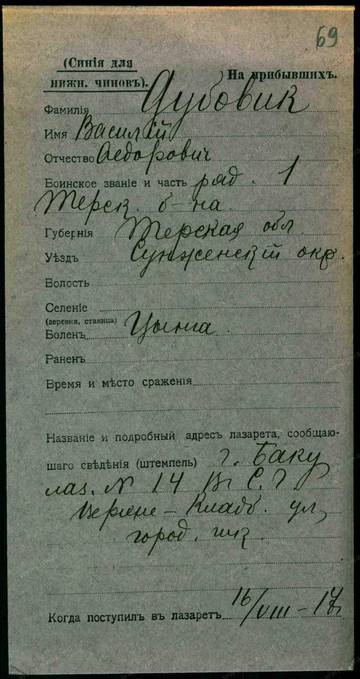 69
(Синія для
нижн. чиновъ).
На прибывшихъ.
Фамилія Дубовик
Имя Василій
Отчество Федорович
Воинское званіе и часть ряд. 1
Терск. б-на
Губернія Терская обл.
Уѣздъ Сунженскій окр.
Волость
Селеніе
(деревня, станица)
Боленъ Цынга
Раненъ
Время и мѣсто сраженія
Названіе и подробный адресъ лазарета, сообщаю-
щаго свѣдѣнія (штемпель) г. Баку
лаз. N 14 В. С. Г.
Верхне-Кладб. ул,
город. шк.
Когда поступилъ въ лазаретъ 16/VIII-17г.